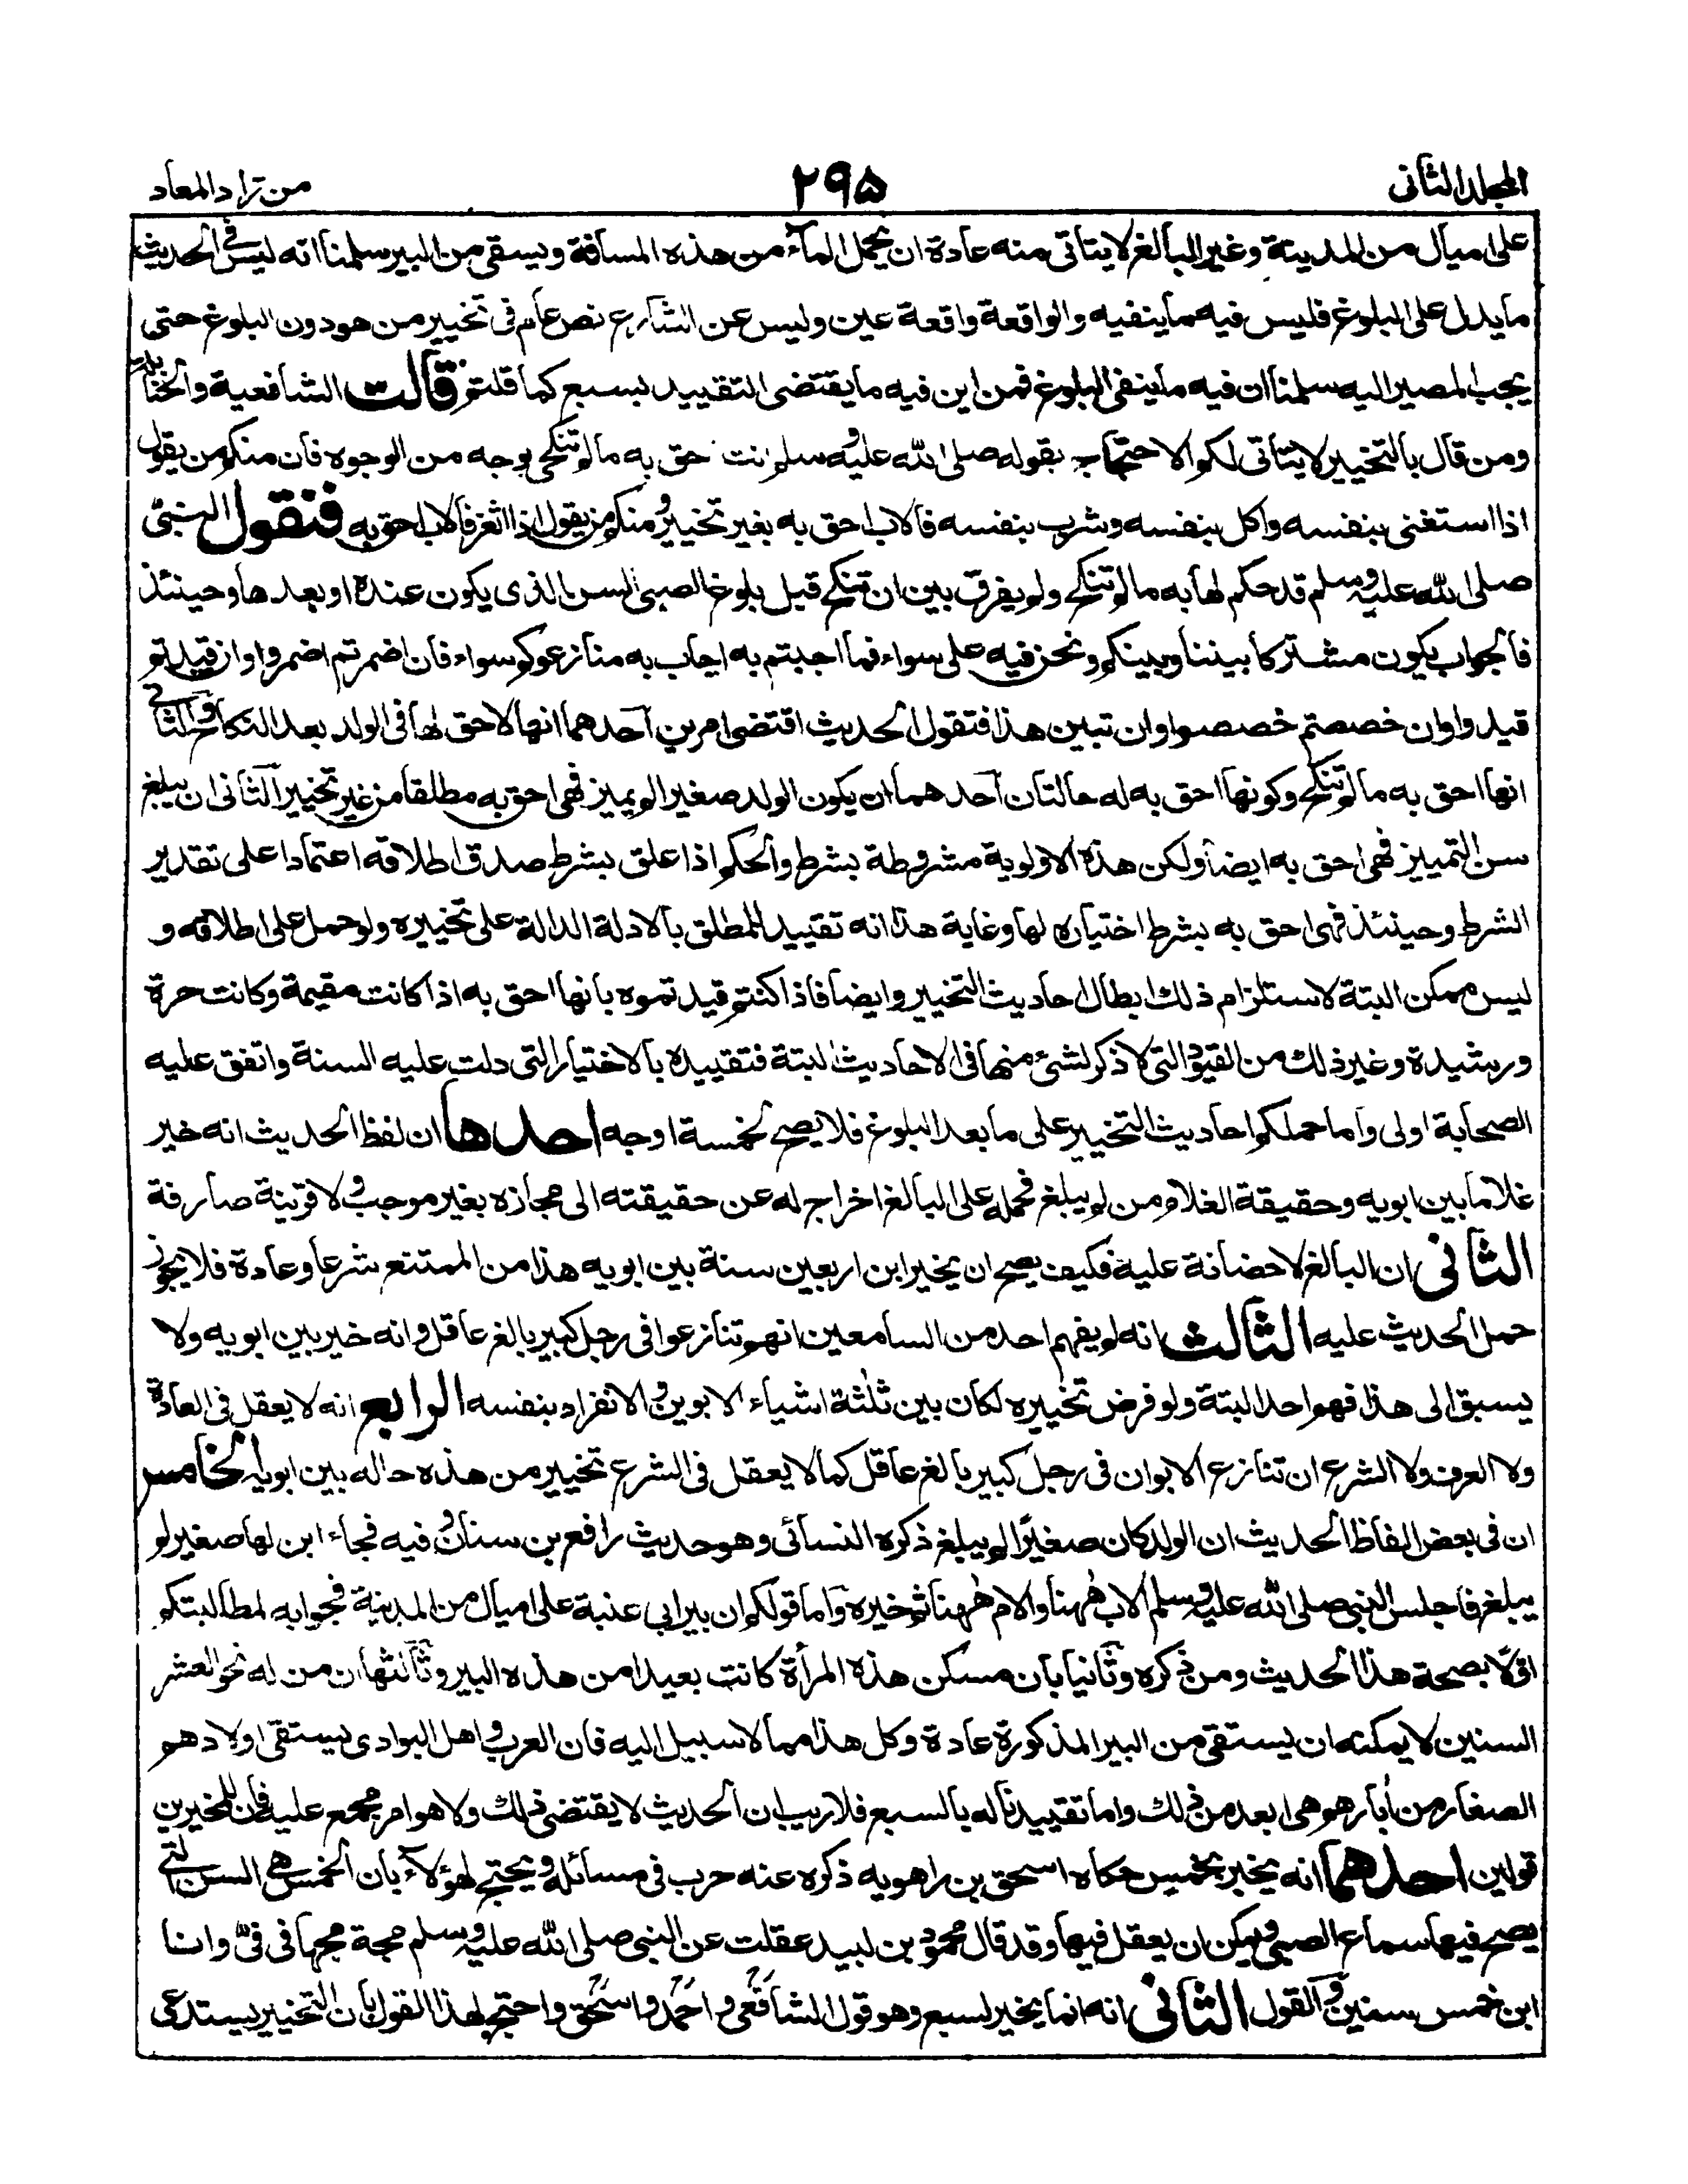 المجلد الثانی
٢٩٥
من زاد المعاد
على اميال من المدينة وغير البالغ لا يتاتى منه عادة ان يحمل الماء من هذه المسافة ويسقى من البير سلمنا انه ليس فى الحديث
ما يدل على البلوغ فليس فيه ما ينفيه والواقعة واقعة عين وليس عن الشارع نص عام فى تخيير من هو دون البلوغ حتى
يجب المصير اليه سلمنا ان فيه ما ينفى البلوغ فمن اين فيه ما يقتضى التقييد بسبع كما قلتم قالت الشافعية والحنابلة
ومن قال بالتخيير لا يتاتى لكم الاحتجاج بقوله صلى الله عليه وسلم انت احق به ما لم تنكحى بوجه من الوجوه فان منكم من يقول
اذا استغنى بنفسه واكل بنفسه وشرب بنفسه فالاب احق به بغير تخيير ومنكم من يقول اذا اثغر فالاب احق به فنقول النبى
صلى الله عليه وسلم قد حكم لها به ما لم تنكح ولم يفرق بين ان تنكح قبل بلوغ الصبى السن الذى يكون عنده او بعدها وحينئذ
فالجواب يكون مشتركا بيننا وبينكم ونحن فيه على سواء فما اجبتم به اجاب به منازعوكم سواء فان اضمرتم اضمروا وان قيدتم
قيدوا وان خصصتم خصصوا وان تبين هذا فتقول الحديث اقتضى امرين احدهما انها لا حق لها فى الولد بعد النكاح والثانى
انها احق به ما لم تنكح وكونها احق به له حالتان احدهما ان يكون الولد صغيرا لم يميز فهى احق به مطلقا من غير تخيير الثانى ان يبلغ
سن التمييز فهى احق به ايضا ولكن هذه الاولوية مشروطة بشرط والحكم اذا علق بشرط صدق اطلاقه اعتمادا على تقدير
الشرط وحينئذ فهى احق به بشرط اختياره لها وغاية هذا انه تقييد للمطلق بالادلة الدالة على تخييره ولو حمل على اطلاقه و
ليس ممكن البتة لاستلزام ذلك ابطال احاديث التخيير وايضا فاذا كنتم قيدتموه بانها احق به اذا كانت مقيمة وكانت حرة
ورشيدة وغير ذلك من القيود التى لا ذكر لشئ منها فى الاحاديث البتة فتقييده بالاختيار التى دلت عليه السنة واتفق عليه
الصحابة اولى واما حملكم احاديث التخيير على ما بعد البلوغ فلا يصح لخمسة اوجه احدها ان لفظ الحديث انه خير
غلاما بين ابويه وحقيقة الغلام من لم يبلغ فحمله على البالغ اخراج له عن حقيقته الى مجازه بغير موجب ولا قرينة صارفة
الثانى ان البالغ لا حضانة عليه فكيف يصح ان يخير ابن اربعين سنة بين ابويه هذا من الممتنع شرعا وعادة فلا يجوز
حمل الحديث عليه الثالث انه لم يفهم احد من السامعين انهم تنازعوا فى رجل كبير بالغ عاقل وانه خير بين ابويه ولا
يسبق الى هذا فهم احد البتة ولو فرض تخييره لكان بين ثلثة اشياء الابوين والانفراد بنفسه الرابع انه لا يعقل فى العادة
ولا العرف ولا الشرع ان تنازع الابوان فى رجل كبير بالغ عاقل كما لا يعقل فى الشرع تخيير من هذه حاله بين ابويه الخامس
ان فى بعض الفاظ الحديث ان الولد كان صغيرا لم يبلغ ذكره النسائى وهو حديث رافع بن سنان وفيه فجاء ابن لها صغير لم
يبلغ فاجلس النبى صلى الله عليه وسلم الاب ههنا والام ههنا ثم خيره واما قولكم ان بير ابى عنبة على اميال من المدينة فجوابه لمطالبتكم
اولا بصحة هذا الحديث ومن ذكره وثانيا بان مسكن هذه المرأة كانت بعيدا من هذه البير وثالثها ان من له نحو العشر
السنين لا يمكنه ان يستقى من البير المذكورة عادة وكل هذا مما لا سبيل اليه فان العرب و اهل البوادى يستقى اولادهم
الصغار من ابارهم هى ابعد من ذلك واما تقييدنا له بالسبع فلا ريب ان الحديث لا يقتضى ذلك ولا هو امر مجمع عليه فان للمخيرين
قولين احدهما انه يخير لخمس حكاه اسحق بن راهويه ذكره عنه حرب فى مسائله ويحتج لهؤلاء بان الخمس هى السن التى
يصح فيها سماع الصبى ويمكن ان يعقل فيها وقد قال محمود بن لبيد عقلت عن النبى صلى الله عليه وسلم مجة مجها فى فىّ وانا
ابن خمس سنين والقول الثانى انه انما يخير لسبع وهو قول الشافعى واحمد واسحق واحتج لهذا القول بان التخيير يستدعى